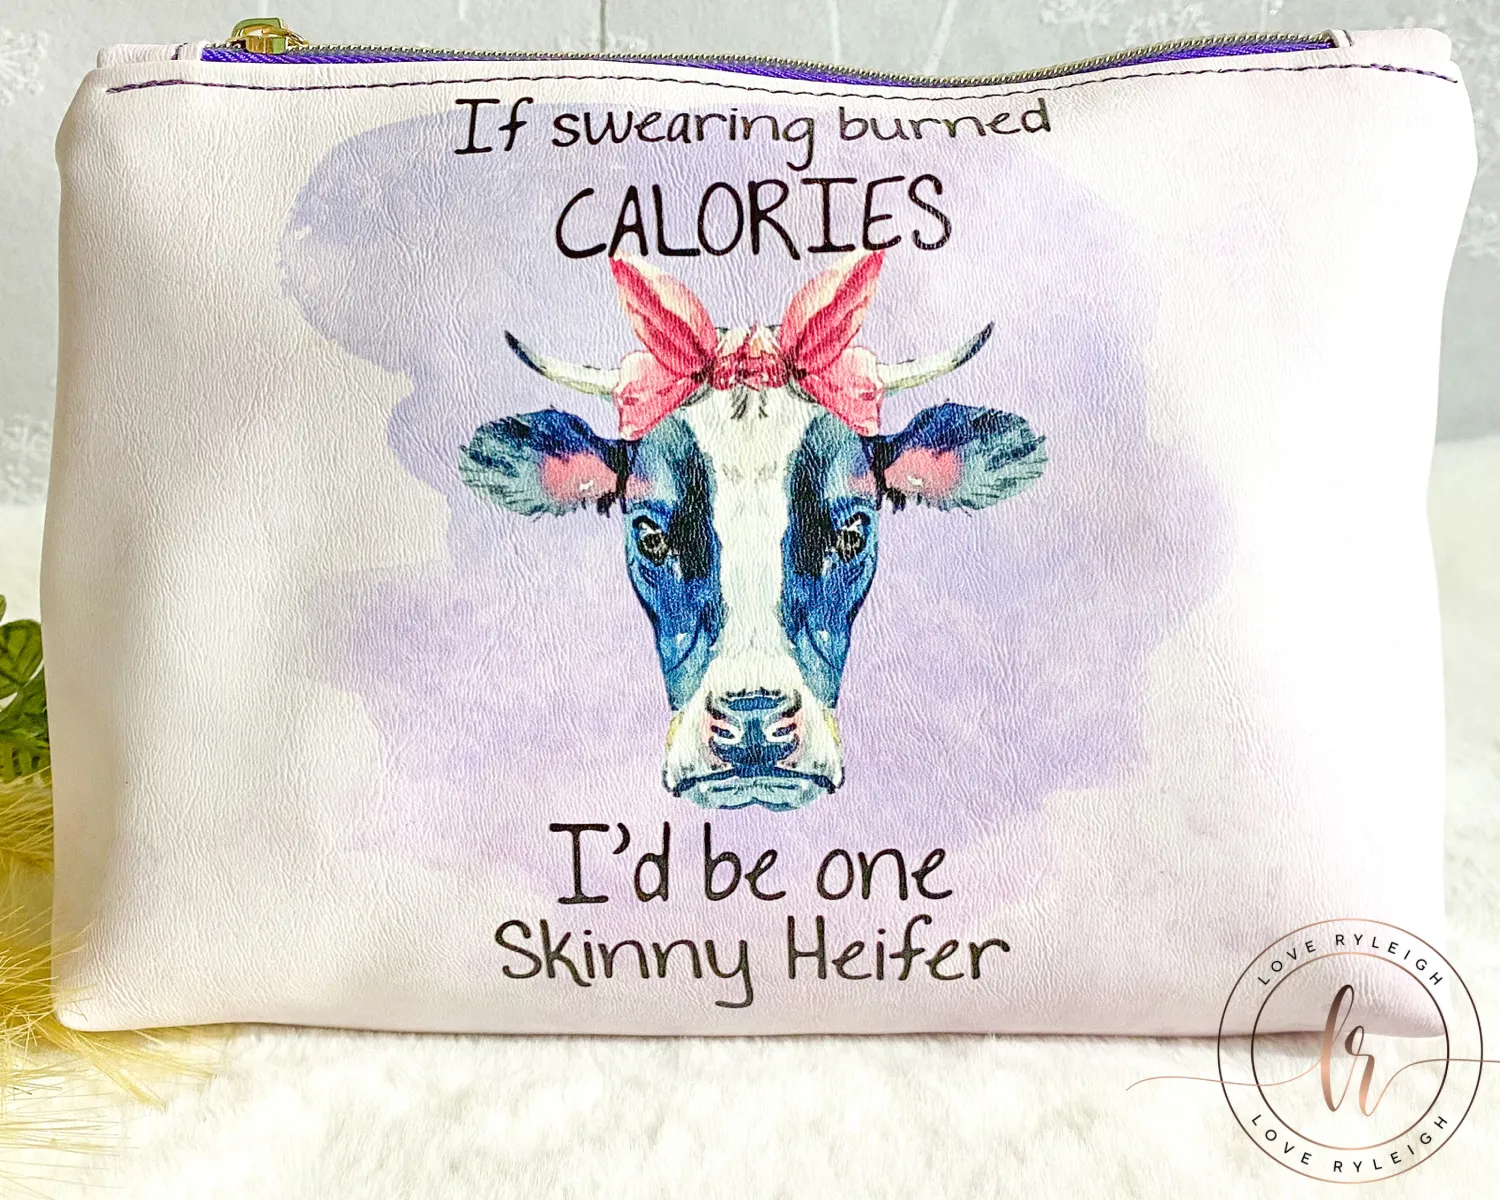 If swearing burned
CALORIES
I'd be one
Skinny Heifer
LOVE RYLEIGH
lr
LOVE RYLEIGH